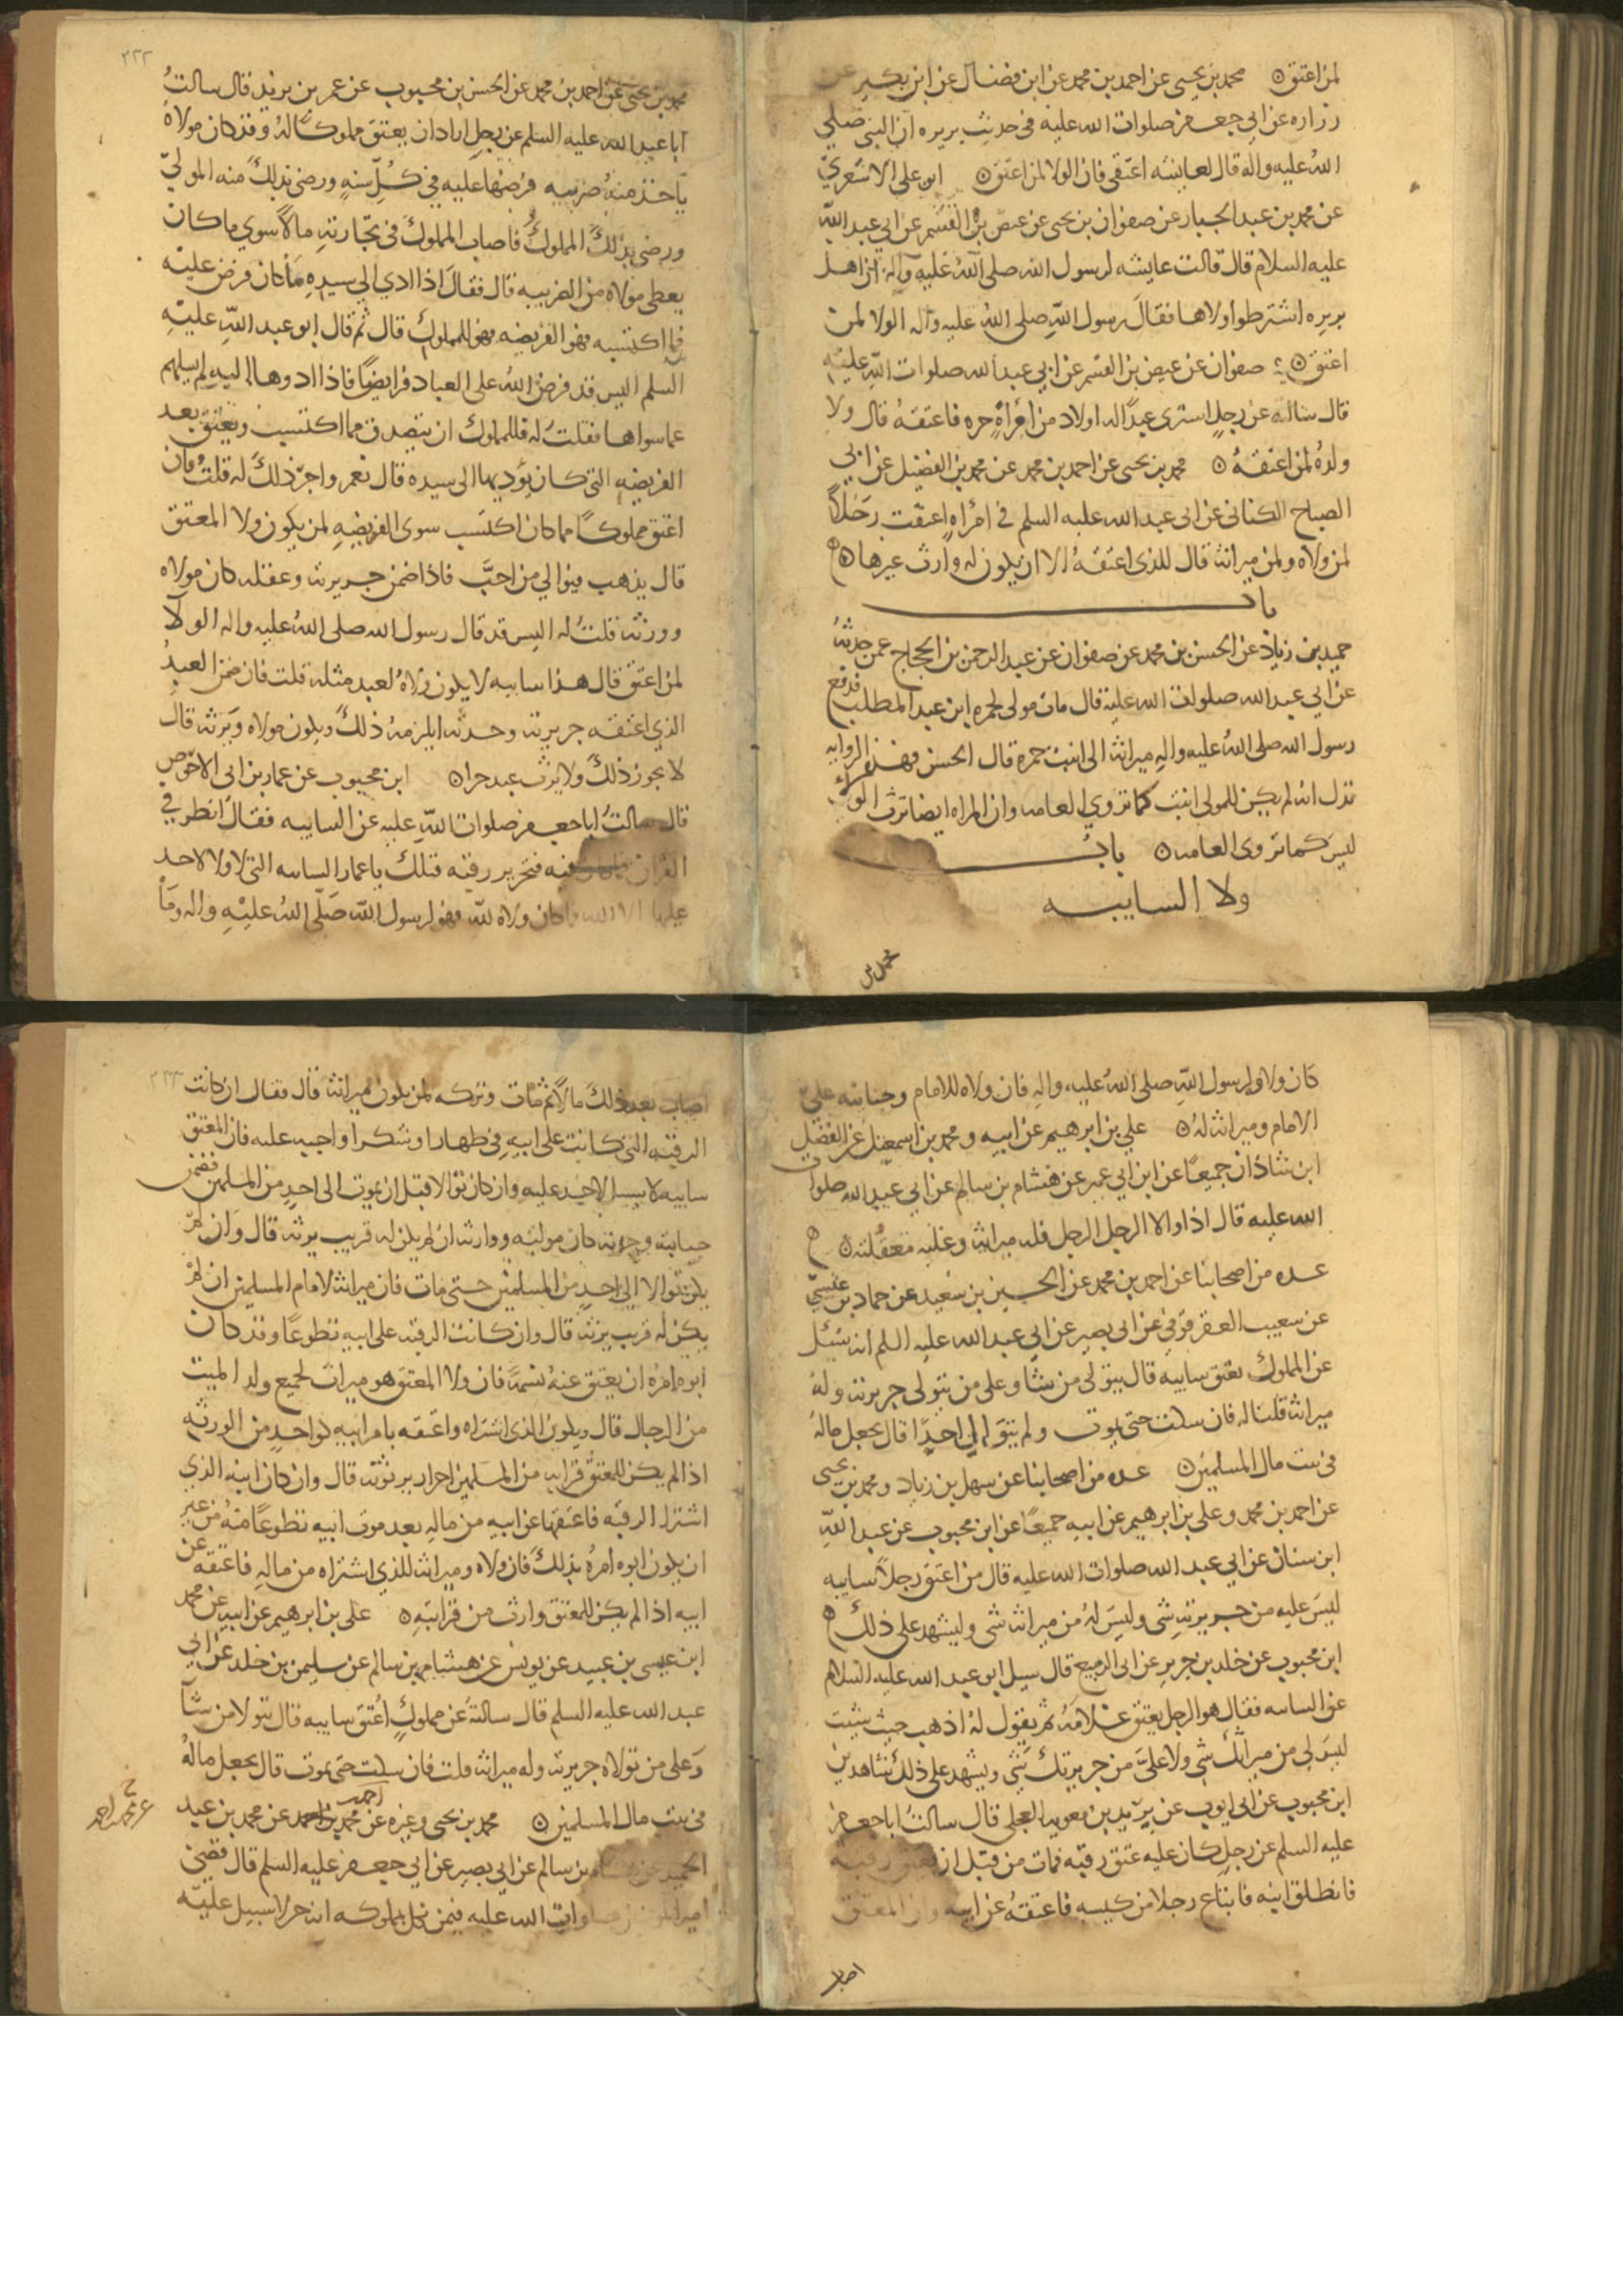 لمن اعتق ۞ محمد بن يحيى عن احمد بن محمد عن ابن فضال عن ابن بكير عن
زراره عن ابي جعفر صلوات الله عليه في حديث بريره ان النبي صلى
الله عليه واله قال لعايشه اعتقي فان الولا لمن اعتق ۞ ابو على الاشعري
عن محمد بن عبد الجبار عن صفوان بن يحيى عن عيص بن القسم عن ابي عبد الله
عليه السلام قال قالت عايشه لرسول الله صلى الله عليه وآله ان اهل
بريره اشترطوا ولاها فقال رسول الله صلى الله عليه وآله الولا لمن
اعتق ۞ صفوان عن عيص بن القسم عن ابي عبد الله صلوات الله عليه
قال سالته عن رجل اشترى عبدًا له اولاد من امرأةٍ حره فاعتقه قال ولا
ولده لمن اعتقهُ ۞ محمد بن يحيى عن احمد بن محمد عن محمد بن الفضيل عن ابي
الصباح الكناني عن ابى عبد الله عليه السلم في امرأه اعتقت رجلاً
لمن ولاه ولمن ميراثه قال للذى اعتقهُ الا ان يكون له وارث غيرها ۞
باب
حميد بن زياد عن الحسن بن محمد عن صفوان عن عبد الرحمن بن الحجاج عمن حدثه
عن ابي عبد الله صلوات الله عليه قال مات مولى لحمزه ابن عبد المطلب فدفع
رسول الله صلى الله عليه واله ميراثه الى ابنت حمزه قال الحسن فهذه الروايه
تدل انه لم يكن للمولى ابنت كما تروي العامه وان المراه ايضا ترث الولاء
ليس كما تروى العامه ۞ باب
ولا السايبه
محمد بن
٢٣٢
محمد بن يحيى عن احمد بن محمد عن الحسن بن محبوب عن عمر بن يزيد قال سالتُ
ابا عبد الله عليه السلم عن رجلٍ اراد ان يعتق مملوكًا لهُ وقد كان مولاه
ياخذ منهُ ضريبه فرضها عليه في كل سنةٍ ورضي بذلك منه المولى
ورضى بذلك المملوك فاصاب المملوك في تجارته مالاً سوى ما كان
يعطى مولاه من الضريبه قال فقال اذا ادي الى سيده ما كان فرض عليه
فما اكتسبه فهو الفريضه فهو للمملوك قال ثم قال ابو عبد الله عليه
السلم اليس قد فرض الله على العباد فرايضًا فاذا ادوها اليه لم يسلهم
عما سواها فقلت له فللمملوك ان يتصدق مما اكتسب ويعتق بعد
الفريضه التى كان يؤديها الى سيده قال نعم واجر ذلك له قلت فان
اعتق مملوكًا مما كان اكتسب سوى الفريضه لمن يكون ولا المعتق
قال يذهب فيوالي من احبَّ فاذا ضمن جريرته وعقله كان مولاه
وورثه قلت له اليس قد قال رسول الله صلى الله عليه واله الولا
لمن اعتق قال هذا سايبه لا يكون ولاهُ لعبد مثله قلت فان ضمن العبدُ
الذي اعتقه جريرته وحدثه ايلزمهُ ذلك ويكون مولاه ويرثه قال
لا يجوز ذلك ولا يرث عبد حرا ۞ ابن محبوب عن عمار بن ابى الاحوص
قال سالتُ ابا جعفر صلوات الله عليه عن السايبه فقال انظر في
القران فيه فتحرير رقبه فتلك يا عمار السايبه التى لا ولا لاحد
عليها الا الله فما كان ولاه لله فهو لرسول الله صلى الله عليه واله وما
كان ولاوه لرسول الله صلى الله عليه واله فان ولاه للامام وجنايته على
الامام وميراثه لهُ ۞ علي بن ابرهيم عن ابيه و محمد بن اسمعيل عن الفضل
ابن شاذان جميعًا عن ابن ابي عمير عن هشام بن سالم عن ابي عبد الله صلوات
الله عليه قال اذا والا الرجل الرجل فله ميراثه وعليه معقلته ۞
عده من اصحابنا عن احمد بن محمد عن الحسين بن سعيد عن حماد بن عيسى
عن شعيب العقرقوفي عن ابى بصير عن ابي عبد الله عليه السلم انه سُئل
عن المملوك يعتق سايبه قال يتولى من شا وعلى من يتولى جريرته ولهُ
ميراثه قلنا له فان سكت حتى يموت ولم يتوالى احدًا قال يجعل ماله
فى بيت مال المسلمين ۞ عده من اصحابنا عن سهل بن زياد ومحمد بن يحيى
عن احمد بن محمد وعلى بن ابرهيم عن ابيه جميعًا عن ابن محبوب عن عبد الله
ابن سنان عن ابي عبد الله صلوات الله عليه قال من اعتق رجلاً سايبه
ليس عليه من جريرته شى وليس له من ميراثه شى وليشهد على ذلك ۞
ابن محبوب عن خلد بن جرير عن ابى الربيع قال سيل ابو عبد الله عليه السلام
عن السايبه فقال هو الرجل يعتق غلامهُ ثم يقول لهُ اذهب حيث شيت
ليس لى من ميراثك شى ولا عليَّ من جريرتك شى ويشهد على ذلك شاهدين
ابن محبوب عن ابي ايوب عن بريد بن معويه العجلى قال سالتُ ابا جعفر
عليه السلم عن رجلٍ كان عليه عتق رقبه فمات من قبل ان يعتق رقبه
فانطلق ابنه فابتاع رجلا من كيسه فاعتقهُ عن ابيه وان المعتق
اصاب
٢٣٣
اصاب بعد ذلك مالاً ثم مات وتركه لمن يكون ميراثه قال فقال ان كانت
الرقبه التى كانت على ابيه في ظهار او شكر او اجبه عليه فان المعتق
سايبه لا سبيل لاحد عليه وان كان توالا قبل ان يموت الى احدٍ من المسلمين فضمن
جنايته وجريرته كان موليه ووارثه ان لم يكن له قريب يرثه قال وان لم
يكن توالا الى احدٍ من المسلمين حتى مات فان ميراثه لامام المسلمين ان لم
يكن له قريب يرثه قال وان كانت الرقبه على ابيه تطوعًا وقد كان
ابوه امرهُ ان يعتق عنه نسمةً فان ولا المعتق هو ميراث لجميع ولد الميت
من الرجال قال ويكون الذى اشتراه واعتقه بامر ابيه كواحدٍ من الورثه
اذا لم يكن للمعتق قرابه من المسلمين احرار يرثونه قال وان كان ابنه الذي
اشترا الرقبه فاعتقها عن ابيه من ماله بعد موت ابيه تطوعًا منهُ من غير
ان يكون ابوه امرهُ بذلك فان ولاه وميراثه للذي اشتراه من ماله فاعتقه عن
ابيه اذا لم يكن للمعتق وارث من قرابته ۞ على بن ابرهيم عن ابيه عن محمد
ابن عيسى بن عبيد عن يونس عن هشام بن سالم عن سليمن بن خلد عن ابي
عبد الله عليه السلم قال سالته عن مملوكٍ اُعتق سايبه قال يتولا من شآ
وعلى من تولاه جريرته وله ميراثه قلت فان سكت حتى يموت قال يجعل ماله
فى بيت مال المسلمين ۞ محمد بن يحيى وغيره عن محمد بن احمد عن محمد بن عبد
احمد
عن محمد بن احمد
الحميد عن هشام بن سالم عن ابي بصير عن ابي جعفر عليه السلم قال قضى
امير المومنين صلوات الله عليه فيمن نكل بمملوكه انه حر لا سبيل عليه